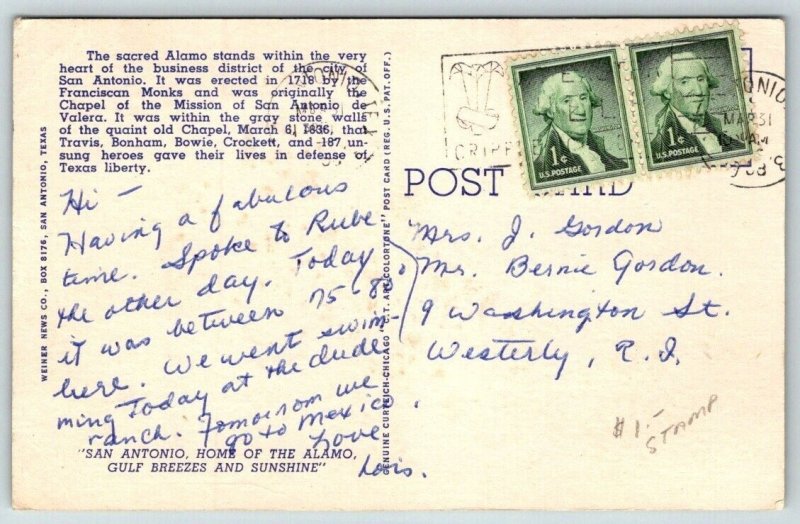 The sacred Alamo stands within the very
heart of the business district of the city of
San Antonio. It was erected in 1718 by the
Franciscan Monks and was originally the
Chapel of the Mission of San Antonio de
Valera. It was within the gray stone walls
of the quaint old Chapel, March 6, 1836, that
Travis, Bonham, Bowie, Crockett, and 187 un-
sung heroes gave their lives in defense of
Texas liberty.
Hi —
Having a fabulous
time. Spoke to Rube
the other day. Today
it was between 75-80
here. We went swim-
ming Today at the dude
ranch. Tomorrow we
go to Mexico.
Love
Lois.
"SAN ANTONIO, HOME OF THE ALAMO,
GULF BREEZES AND SUNSHINE"
WEINER NEWS CO., BOX 8176, SAN ANTONIO, TEXAS
GENUINE CURTEICH-CHICAGO "C.T. ART-COLORTONE" POST CARD (REG. U.S. PAT. OFF.)
POST CARD
CRIPP
1¢
U.S. POSTAGE
1¢
U.S. POSTAGE
TONIO
MAR 31
AM
Mrs. J. Gordon
Mr. Bernie Gordon.
9 Washington St.
Westerly, R.I.
$1.—
STAMP